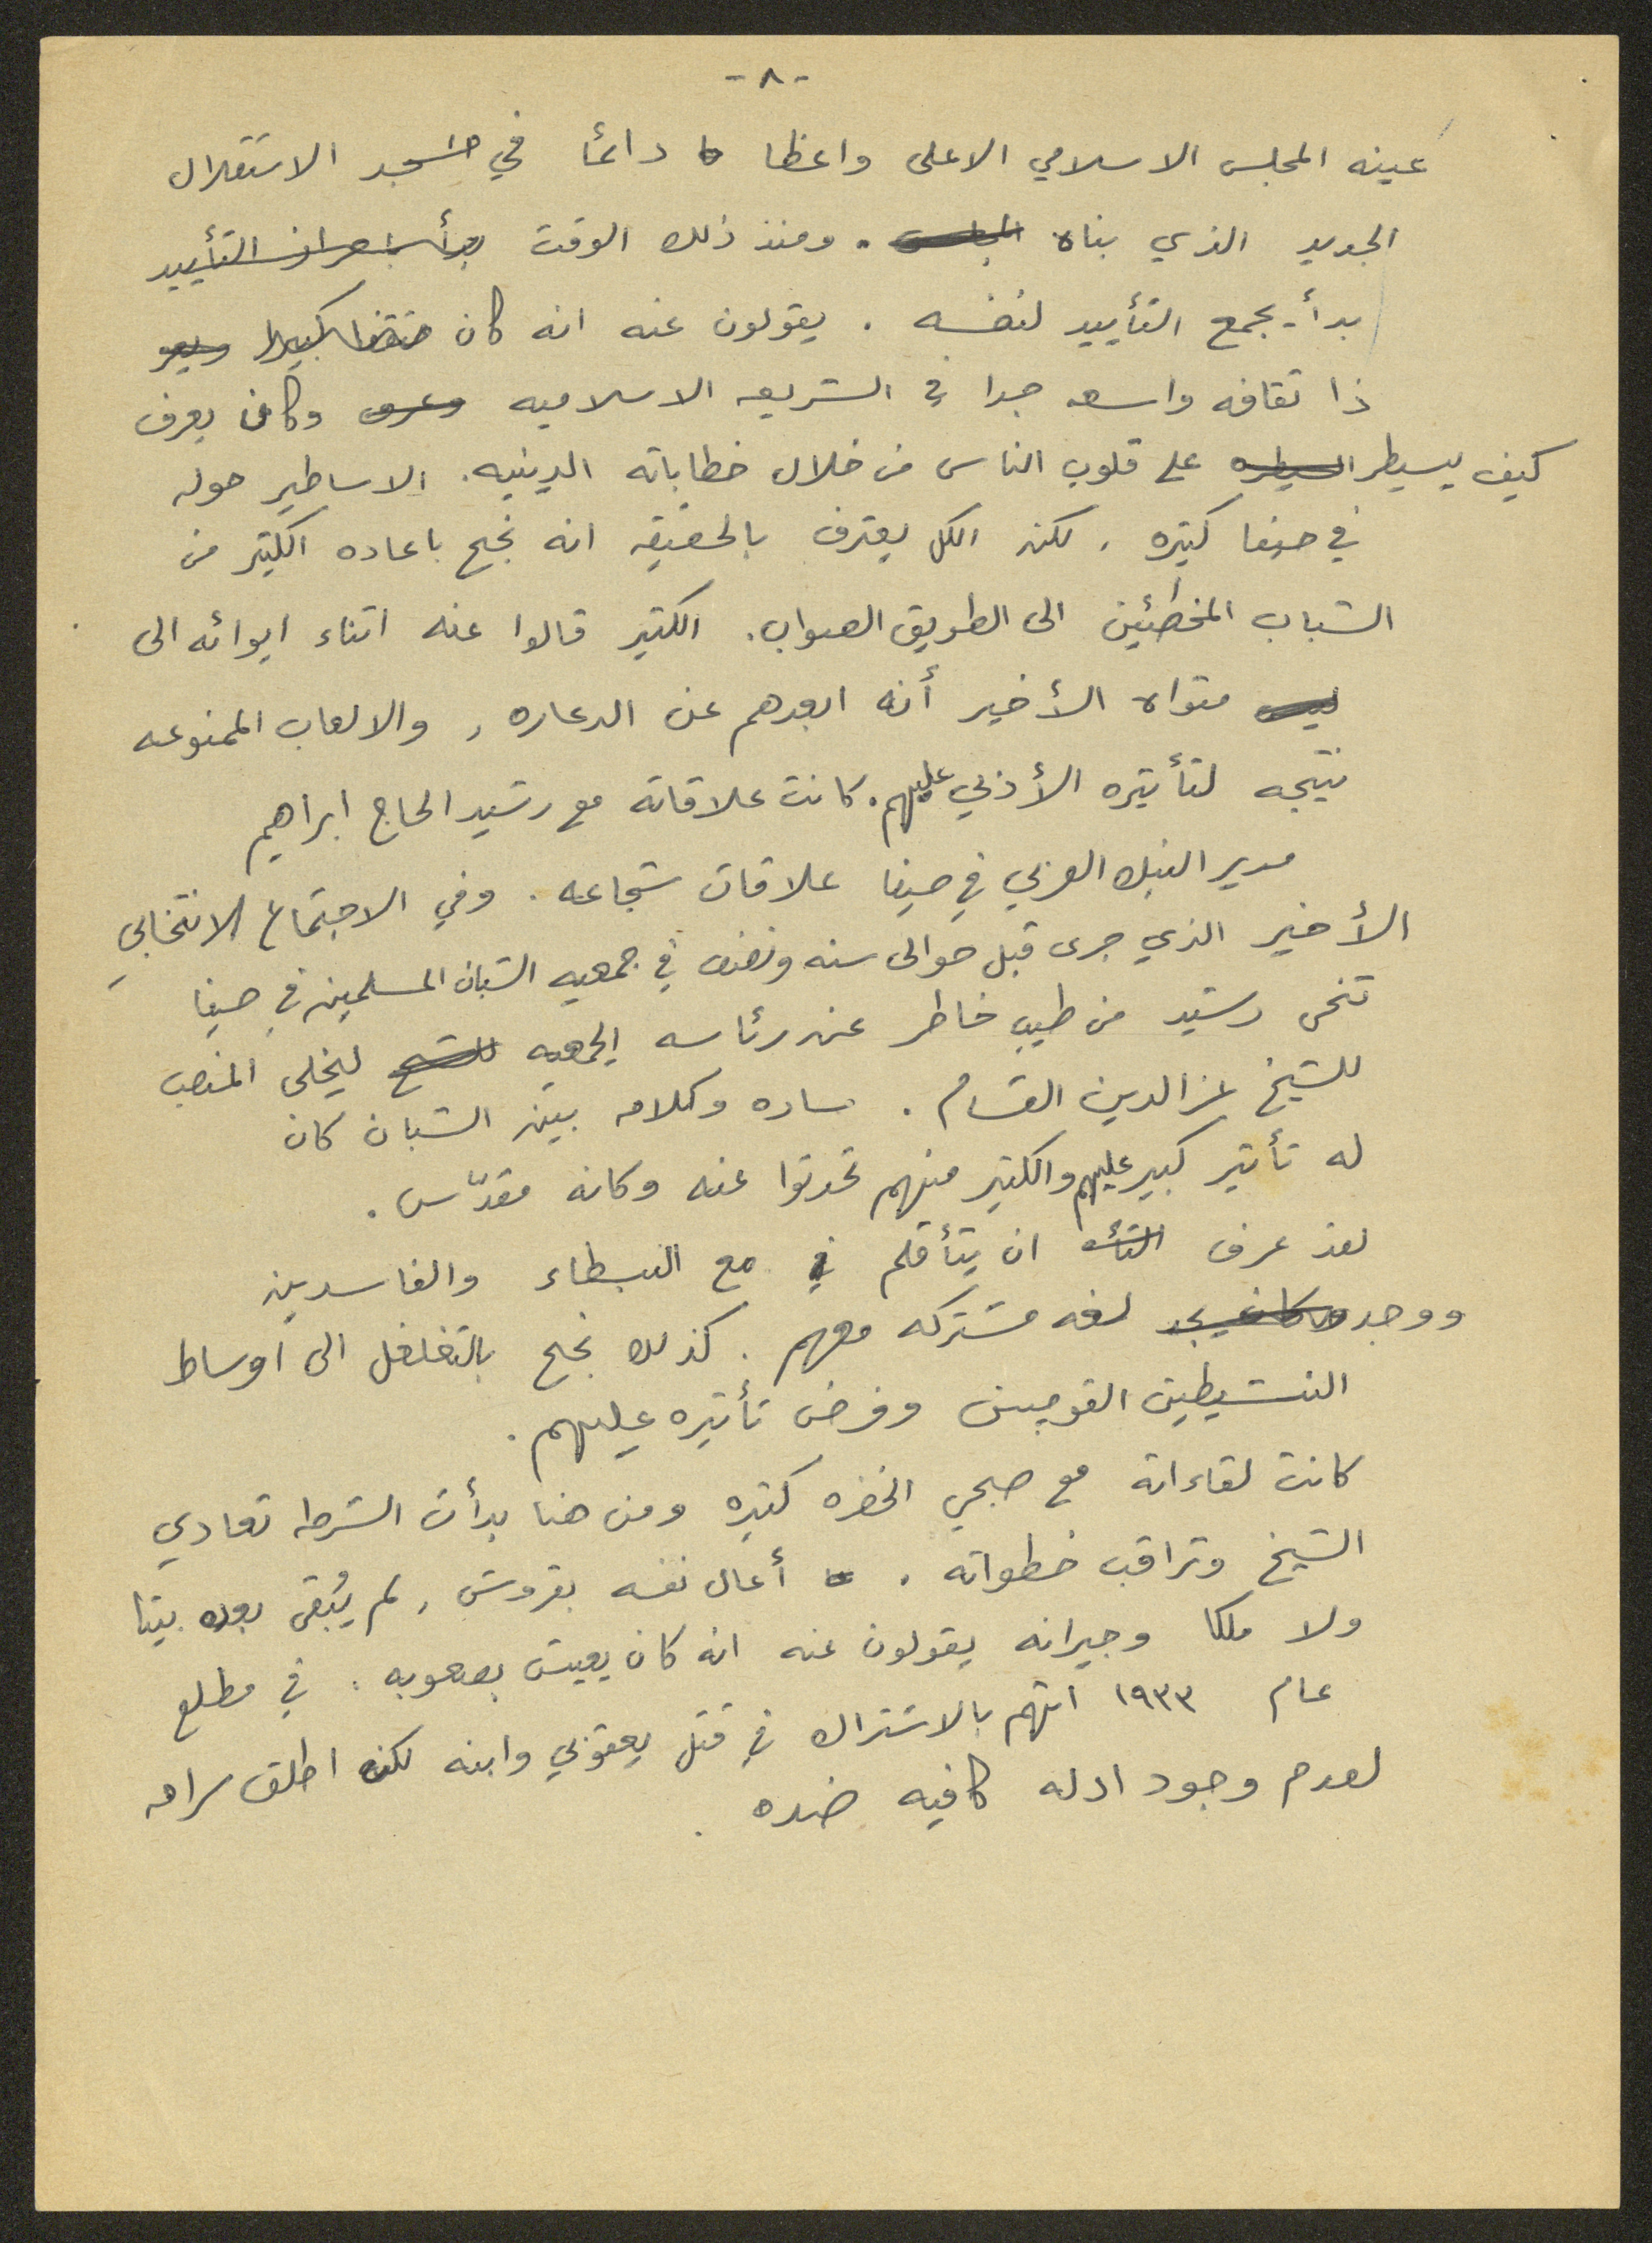 -٨-
عينه المجلس الاسلامي الاعلى واعظا دائما في مسجد الاستقلال
الجديد الذي بناه المجلس. ومنذ ذلك الوقت بدأ باحراز التأييد
بدأ يجمع التأييد لنفسه. يقولون عنه انه كان مثقفا كبيرا
ذا ثقافه واسعه جدا في الشريعه الاسلاميه وعرف وكان يعرف
كيف يسيطر السيطره على قلوب الناس من خلال خطاباته الدينيه. الاساطير حوله
في حيفا كثيره, لكن الكل يعترف بالحقيقه انه نجح باعاده الكثير من
الشباب المخطئين الى الطريق الصواب. الكثير قالوا عنه اثناء ايوائه الى
مثواه الأخير أنه ابعدهم عن الدعاره, والالعاب الممنوعه
نتيجه لتأثيره الأدبي عليهم. كانت علاقاته مع رشيد الحاج ابراهيم
مدير البنك العربي في حيفا علاقات شجاعه. وفي الاجتماع الانتخابي
الأخير الذي جرى قبل حوالى سنه ونصف في جمعيه الشبان المسلمين في حيفا
تنحى رشيد من طيب خاطر عن رئاسه الجمعيه للشيخ ليخلى المنصب
للشيخ عز الدين القسام. ساره وكلامه بين الشبان كان
له تأثير كبير عليهم والكثير منهم تحدثوا عنه وكانه مقدّس.
لقد عرف ان يتأقلم في مع البسطاء والفاسدين
ووجد وكان يجد لغه مشتركه معهم. كذلك نجح بالتغلغل الى اوساط
النشيطين القوميين وفرض تأثيره عليهم.
كانت لقاءاته مع صبحي الخضره كثيره ومن هنا بدأت الشرطه تعادي
الشيخ وتراقب خطواته. أعال نفسه بقروش, لم يُبقى بعده بيتا
ولا ملكا وجيرانه يقولون عنه انه كان يعيش بصعوبه. في مطلع
عام ١٩٣٣ اتهم بالاشتراك في قتل يعقوبي وابنه لكنه اطلق سراحه
لعدم وجود ادله كافيه ضده.